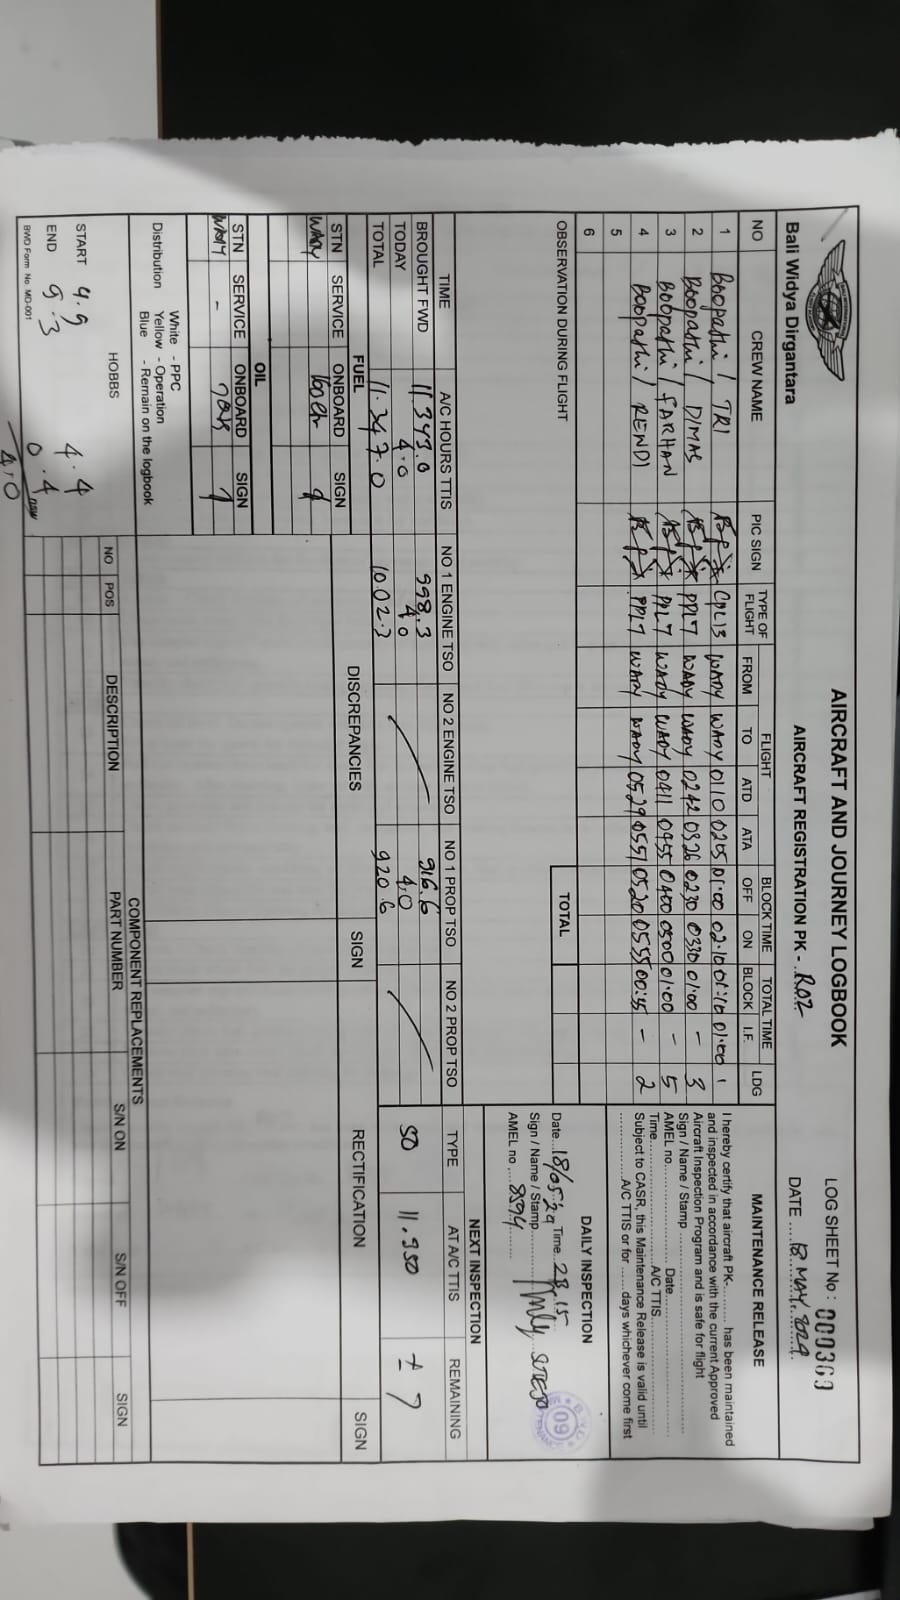 AIRCRAFT AND JOURNEY LOGBOOK
LOG SHEET No : 000369
Bali Widya Dirgantara
AIRCRAFT REGISTRATION PK - ROZ
DATE 18 MAY 2024
NO CREW NAME PIC SIGN TYPE OF FLIGHT FLIGHT BLOCK TIME TOTAL TIME LDG
FROM TO ATD ATA OFF ON BLOCK I.F.
1 Boopathi / TRI CPL13 WADY WADY 0110 0205 01:00 02:10 01:10 01:00 1
2 Boopathi / DIMAS PPL7 WADY WADY 0242 0326 0230 0330 01:00 - 3
3 Boopathi / FARHAN PPL7 WADY WADY 0411 0455 0400 0500 01:00 - 5
4 Boopathi / RENDI PPL7 WADY WADY 0529 0551 0520 0555 00:35 - 2
5
6
OBSERVATION DURING FLIGHT
TOTAL
MAINTENANCE RELEASE
I hereby certify that aircraft PK-......... has been maintained
and inspected in accordance with the current Approved
Aircraft Inspection Program and is safe for flight
Sign / Name / Stamp
AMEL no. Date
Time A/C TTIS
Subject to CASR, this Maintenance Release is valid until
A/C TTIS or for ...... days whichever come first
DAILY INSPECTION
Date 18/05/24 Time 23.15
Sign / Name / Stamp
AMEL no 8594
09
TIME A/C HOURS TTIS NO 1 ENGINE TSO NO 2 ENGINE TSO NO 1 PROP TSO NO 2 PROP TSO
BROUGHT FWD 11.343.0 998.3 916.6
TODAY 4.0 4.0 4.0
TOTAL 11.347.0 10.02.3 920.6
NEXT INSPECTION
TYPE AT A/C TTIS REMAINING
50 11.350 ± 7
FUEL
STN SERVICE ONBOARD SIGN
WADY
OIL
STN SERVICE ONBOARD SIGN
WADY -
DISCREPANCIES SIGN RECTIFICATION SIGN
Distribution White - PPC
Yellow - Operation
Blue - Remain on the logbook
COMPONENT REPLACEMENTS
NO POS DESCRIPTION PART NUMBER S/N ON S/N OFF SIGN
HOBBS
START 4.9 4.4
END 9.3 0.4
4.0
BWD Form No. MD-001